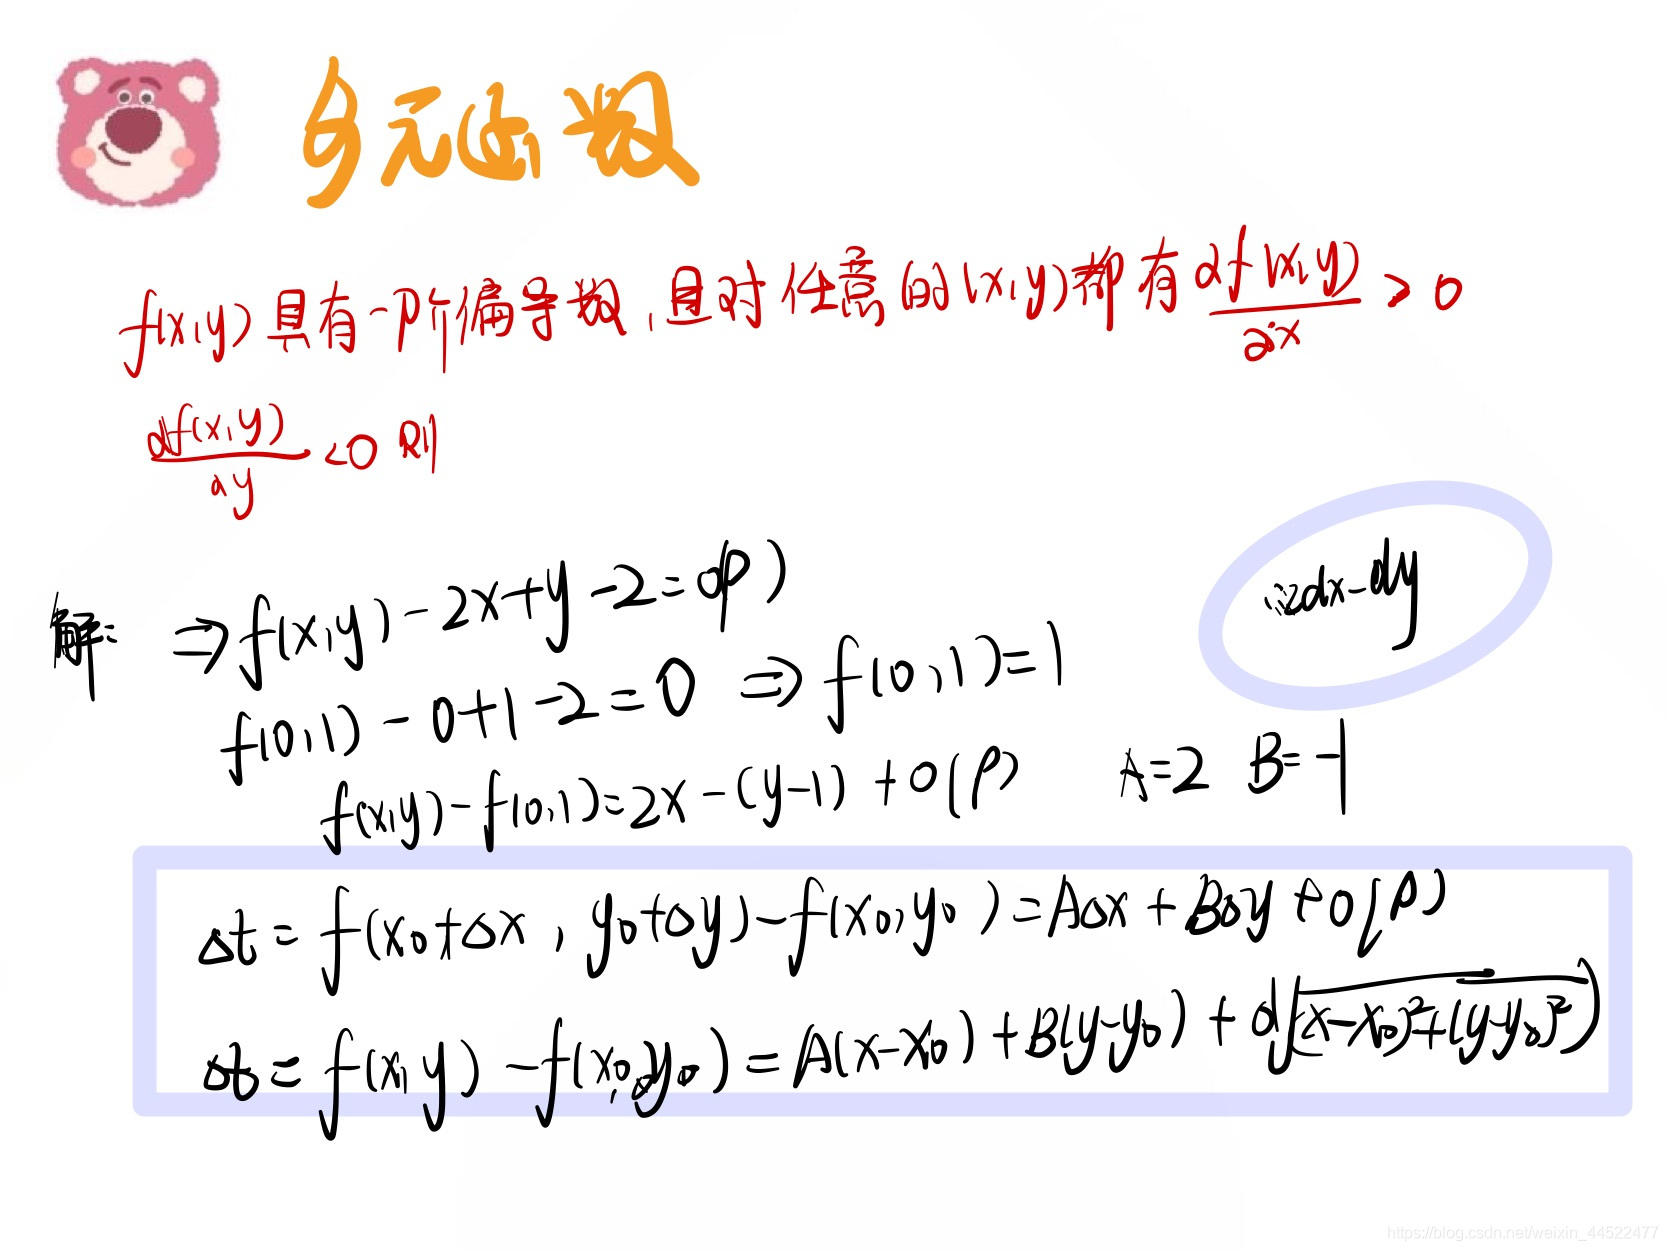 多元函数
f(x,y)具有一阶偏导数,且对任意的(x,y)都有 ∂f(x,y)/∂x > 0
∂f(x,y)/∂y <0 则
解: ⇒ f(x,y) - 2x + y - 2 = o(ρ)
∴2dx-dy
f(0,1) - 0+1-2=0 ⇒ f(0,1)=1
f(x,y)-f(0,1)=2x-(y-1)+o(ρ) A=2 B=-1
Δt = f(x₀+Δx, y₀+Δy)-f(x₀,y₀)=AΔx+BΔy+o(ρ)
Δt = f(x,y)-f(x₀,y₀)=A(x-x₀)+B(y-y₀)+o(√((x-x₀)²+(y-y₀)²))
https://blog.csdn.net/weixin_44522477